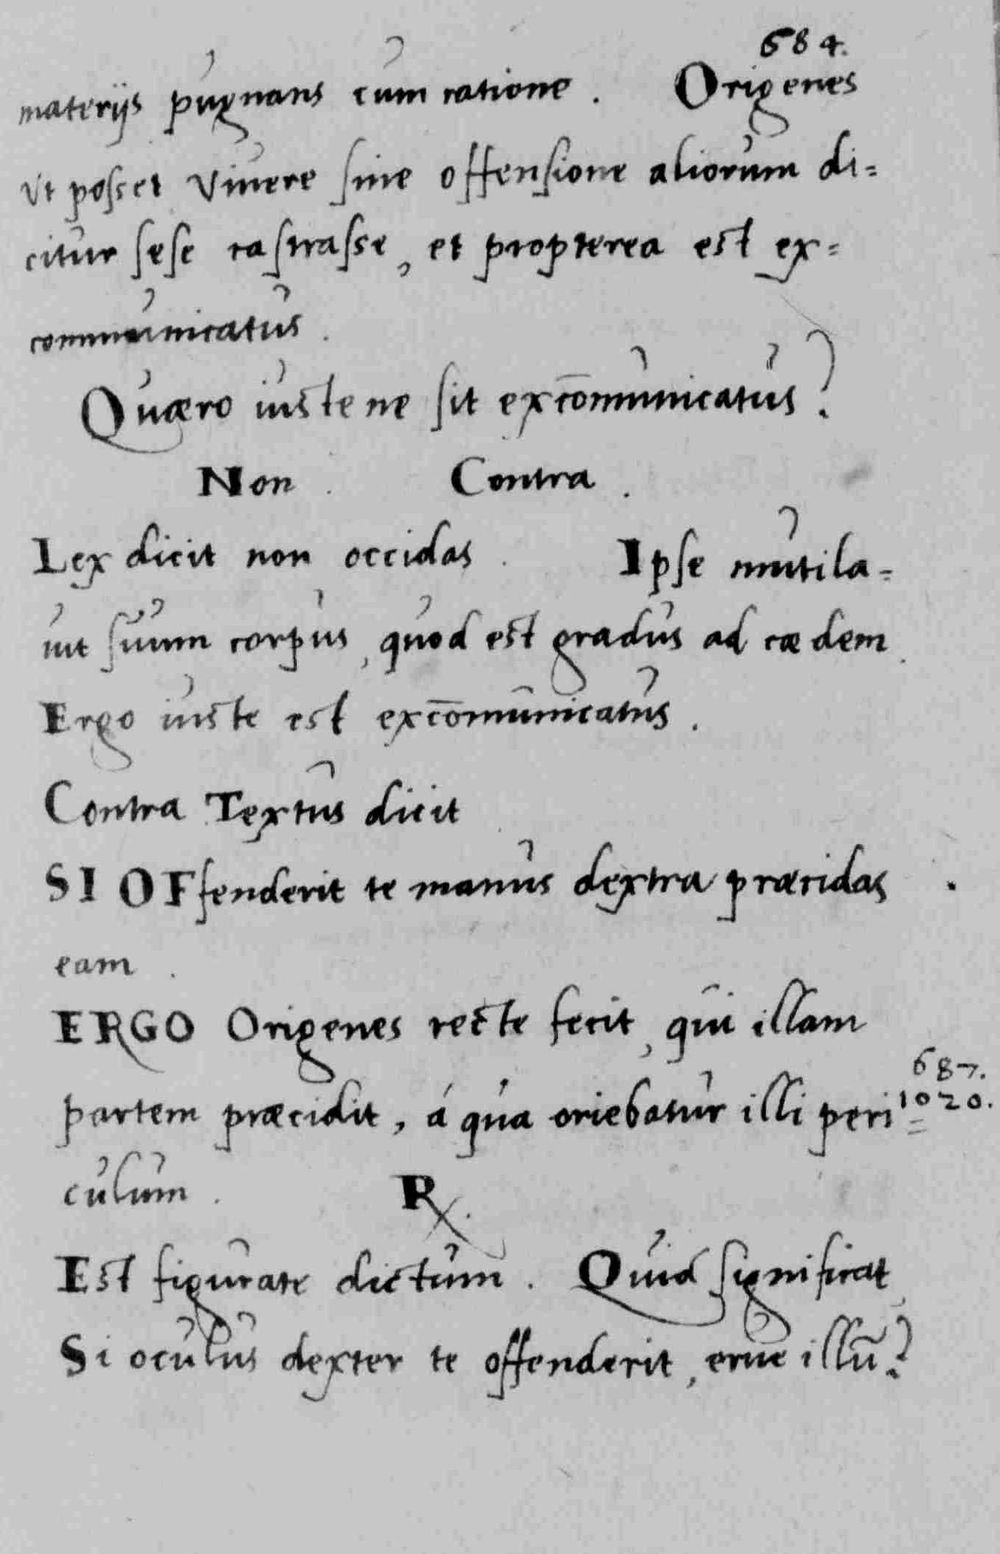 684.
materijs pugnans cum ratione. Origenes
Vt posset viuere sine offensione aliorum di=
citur sese castrasse, et propterea est ex=
communicatus.
Quæro iustene sit excōmunicatus?
Non. Contra.
Lex dicit non occidas. Ipse mutila=
uit suum corpus, quod est gradus ad cædem.
Ergo iuste est excōmunicatus.
Contra Textus dicit
SI OFfenderit te manus dextra præcidas
eam.
ERGO Origenes recte fecit, qui illam
687.
partem præcidit, á qua oriebatur illi peri= 1020.
culum. R.
Est figurate dictum. Quid significat,
Si oculus dexter te offenderit, erue illū?